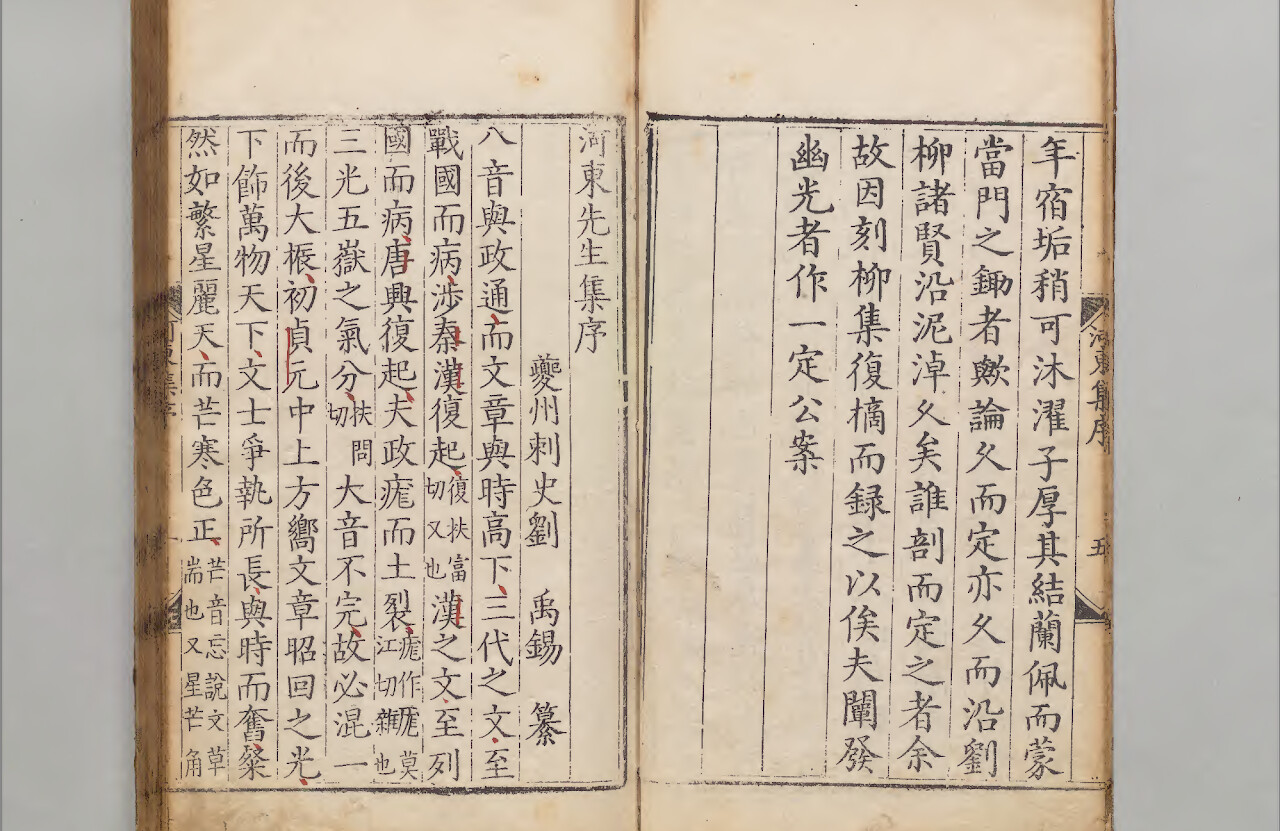 年宿垢稍可沐濯子厚其結蘭佩而蒙
當門之鋤者歟論久而定亦久而沿劉
柳諸賢沿泥淖久矣誰剖而定之者余
故因刻柳集復摘而録之以俟夫闡發
幽光者作一定公案
河東集序
五
河東先生集序
夔州刺史劉 禹錫 纂
八音與政通而文章與時高下三代之文至
戰國而病涉秦漢復起復扶富切又也漢之文至列
國而病唐興復起夫政痝而土裂痝作厖莫江切雜也
三光五嶽之氣分扶問切大音不完故必混一
而後大振初貞元中上方嚮文章昭回之光
下飾萬物天下文士爭執所長與時而奮粲
然如繁星麗天而芒寒色正芒音忘說文草耑也又星芒角
河東集序